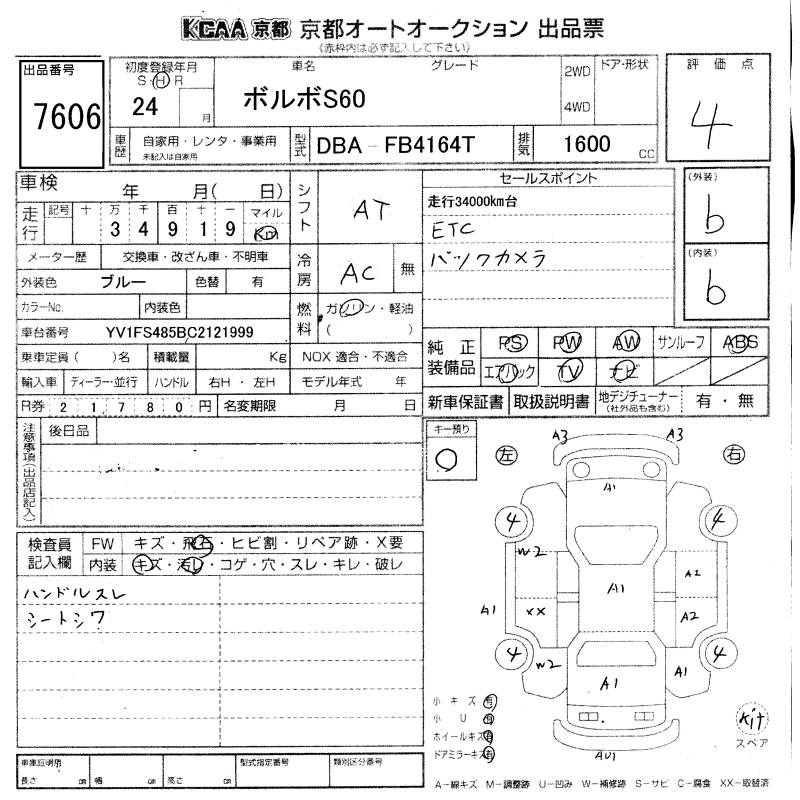 KCAA 京都 京都オートオークション 出品票
(赤枠内は必ず記入して下さい)
出品番号
7606
初度登録年月
S・H R
24 月
車名 グレード
ボルボS60
2WD
4WD
ドア・形状
評価点
4
車歴 自家用・レンタ・事業用
未記入は自家用
型式 DBA - FB4164T
排気 1600 CC
車検 年 月( 日)
走行 記号 十 万 千 百 十 一 マイル
3 4 9 1 9 Km
シフト AT
セールスポイント
走行34000km台
ETC
バックカメラ
(外装)
b
(内装)
b
メーター歴 交換車・改ざん車・不明車
外装色 ブルー 色替 有
冷房 AC 無
カラーNo. 内装色
燃料 ガソリン・軽油
( )
車台番号 YV1FS485BC2121999
乗車定員( )名 積載量 Kg NOX 適合・不適合
輸入車 ディーラー・並行 ハンドル 右H・左H モデル年式 年
R券 2 1 7 8 0 円 名変期限 月 日
純正装備品 PS PW AW サンルーフ ABS
エアバック TV ナビ
新車保証書 取扱説明書 地デジチューナー
(社外品も含む) 有・無
注意事項(出品店記入)
後日品
キー預り
○
検査員記入欄
FW キズ・飛石・ヒビ割・リペア跡・X要
内装 キズ・汚レ・コゲ・穴・スレ・キレ・破レ
ハンドルスレ
シートシワ
A3 A3
左 右
A1
4 4
W2 A2
A1 XX A1 A2
4 4
W2 A1 A1
AU1
小キズ 有
小U 有
ホイールキズ 有
ドアミラーキズ 有
kit
スペア
車庫証明用
長さ cm 幅 cm 高さ cm
型式指定番号
類別区分番号
A－線キズ M－調整跡 U－凹み W－補修跡 S－サビ C－腐食 XX－取替済